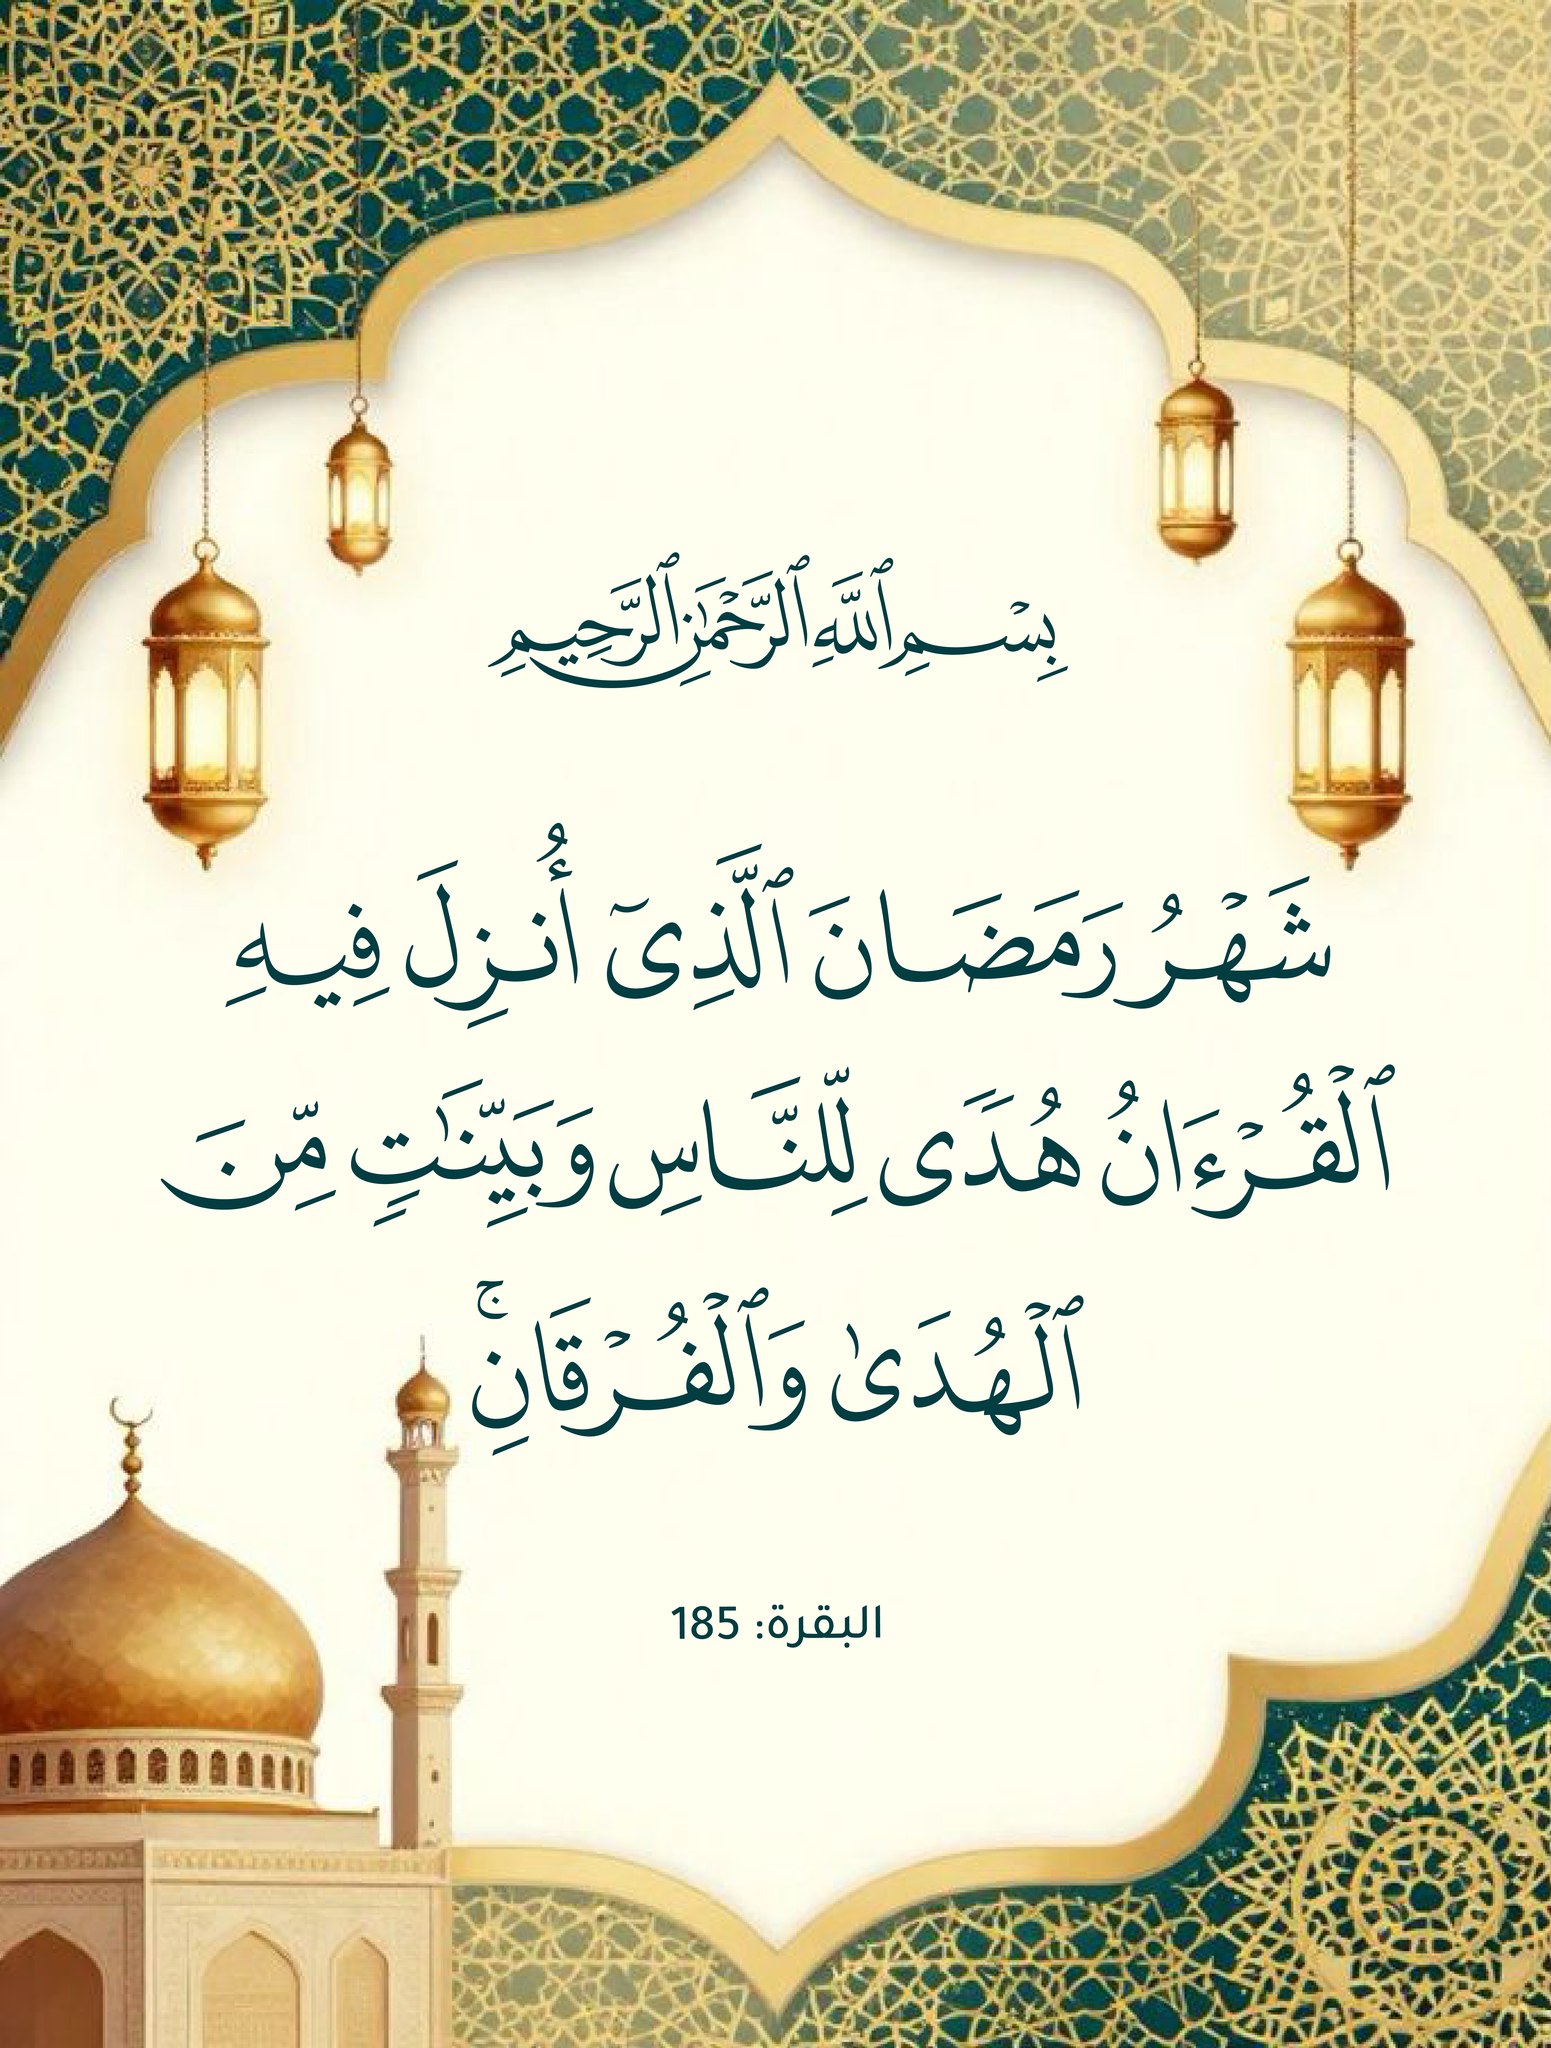 بِسْمِ ٱللَّهِ ٱلرَّحْمَٰنِ ٱلرَّحِيمِ
شَهْرُ رَمَضَانَ ٱلَّذِىٓ أُنزِلَ فِيهِ
ٱلْقُرْءَانُ هُدًى لِّلنَّاسِ وَبَيِّنَٰتٍ مِّنَ
ٱلْهُدَىٰ وَٱلْفُرْقَانِ ۚ
البقرة: 185